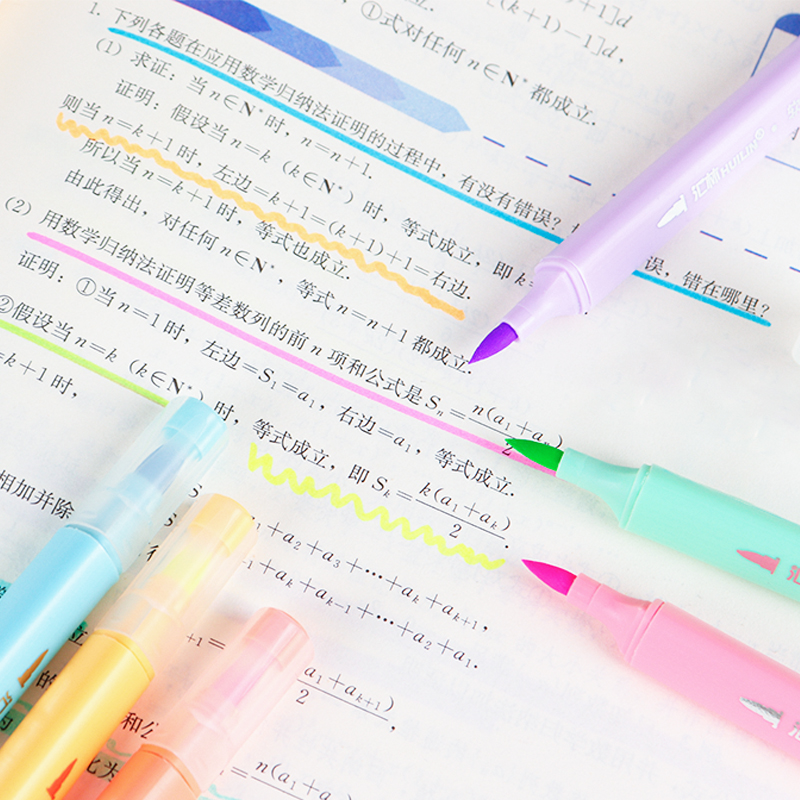 +1]d
[(k+1)-1]d,
①式对任何 n∈N* 都成立.
1. 下列各题在应用数学归纳法证明的过程中，有没有错误？ 误，错在哪里？
(1) 求证：当 n∈N* 时，n=n+1.
证明：假设当 n=k (k∈N*) 时，等式成立，即 k=
则当 n=k+1 时，左边=k+1=(k+1)+1=右边.
所以当 n=k+1 时，等式也成立.
由此得出，对任何 n∈N*，等式 n=n+1 都成立.
(2) 用数学归纳法证明等差数列的前 n 项和公式是 Sₙ=n(a₁+aₙ)/2
证明：①当 n=1 时，左边=S₁=a₁，右边=a₁，等式成立.
②假设当 n=k (k∈N*) 时，等式成立，即 Sₖ=k(a₁+aₖ)/2.
=k+1 时，
a₂+a₃+⋯+aₖ+aₖ₊₁,
+aₖ+aₖ₋₁+⋯+a₂+a₁.
相加并除
₊₁=
a₁+aₖ₊₁)/2,
的
和公
=n(a₁+a
汇林 HUILIN
汇